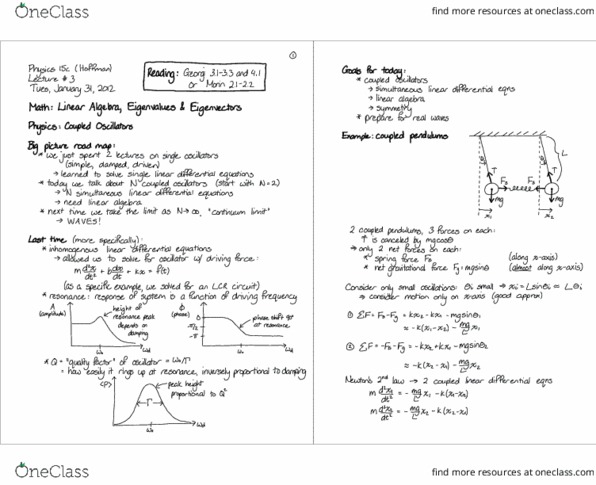 OneClass
find more resources at oneclass.com
①
Physics 15c (Hoffman)
Lecture #3
Tues, January 31, 2012
Reading: Georgi 3.1-3.3 and 4.1
or Morin 2.1-2.2
Math: Linear Algebra, Eigenvalues & Eigenvectors
Physics: Coupled Oscillators
Big picture road map:
* we just spent 2 lectures on single oscillators
(simple, damped, driven)
→ learned to solve single linear differential equations
* today we talk about N coupled oscillators (start with N=2)
→ N simultaneous linear differential equations
→ need linear algebra
* next time we take the limit as N→∞, "continuum limit"
→ WAVES!
Last time (more specifically):
* inhomogenous linear differential equations
→ allowed us to solve for oscillator w/ driving force:
m d²x/dt² + b dx/dt + kx = f(t)
(as a specific example, we solved for an LCR circuit)
* resonance: response of system is a function of driving frequency
A
(amplitude)
height of
resonance peak
depends on
damping
ω₀
ωd
(phase)
0
-π/2
-π
phase shift 90°
at resonance
ω₀
ωd
* Q = "quality factor" of oscillator = ω₀/Γ
= how easily it rings up at resonance, inversely proportional to damping
⟨P⟩
peak height
proportional to Q²
Γ
ω₀
ωd
Goals for today:
* coupled oscillators
→ simultaneous linear differential eqns
→ linear algebra
→ symmetry
* prepare for real waves
Example: coupled pendulums
L
T
T
Fs
Fs
mg
mg
x₁
x₂
2 coupled pendulums, 3 forces on each:
↑ is canceled by mgcosθ
→ only 2 net forces on each:
* spring force Fs (along x-axis)
* net gravitational force Fg: mgsinθ (almost along x-axis)
Consider only small oscillations: θi small → xi = Lsinθi ≈ Lθi
→ consider motion only on x-axis (good approx)
① ΣF = Fs-Fg = kx₂-kx₁-mgsinθ₁
≈ -k(x₁-x₂) - mg/L x₁
② ΣF = -Fs-Fg = -kx₂+kx₁-mgsinθ₂
≈ -k(x₂-x₁) - mg/L x₂
Newton's 2nd law → 2 coupled linear differential eqns
m d²x₁/dt² = -mg/L x₁ - k(x₁-x₂)
m d²x₂/dt² = -mg/L x₂ - k(x₂-x₁)
OneClass
find more resources at oneclass.com